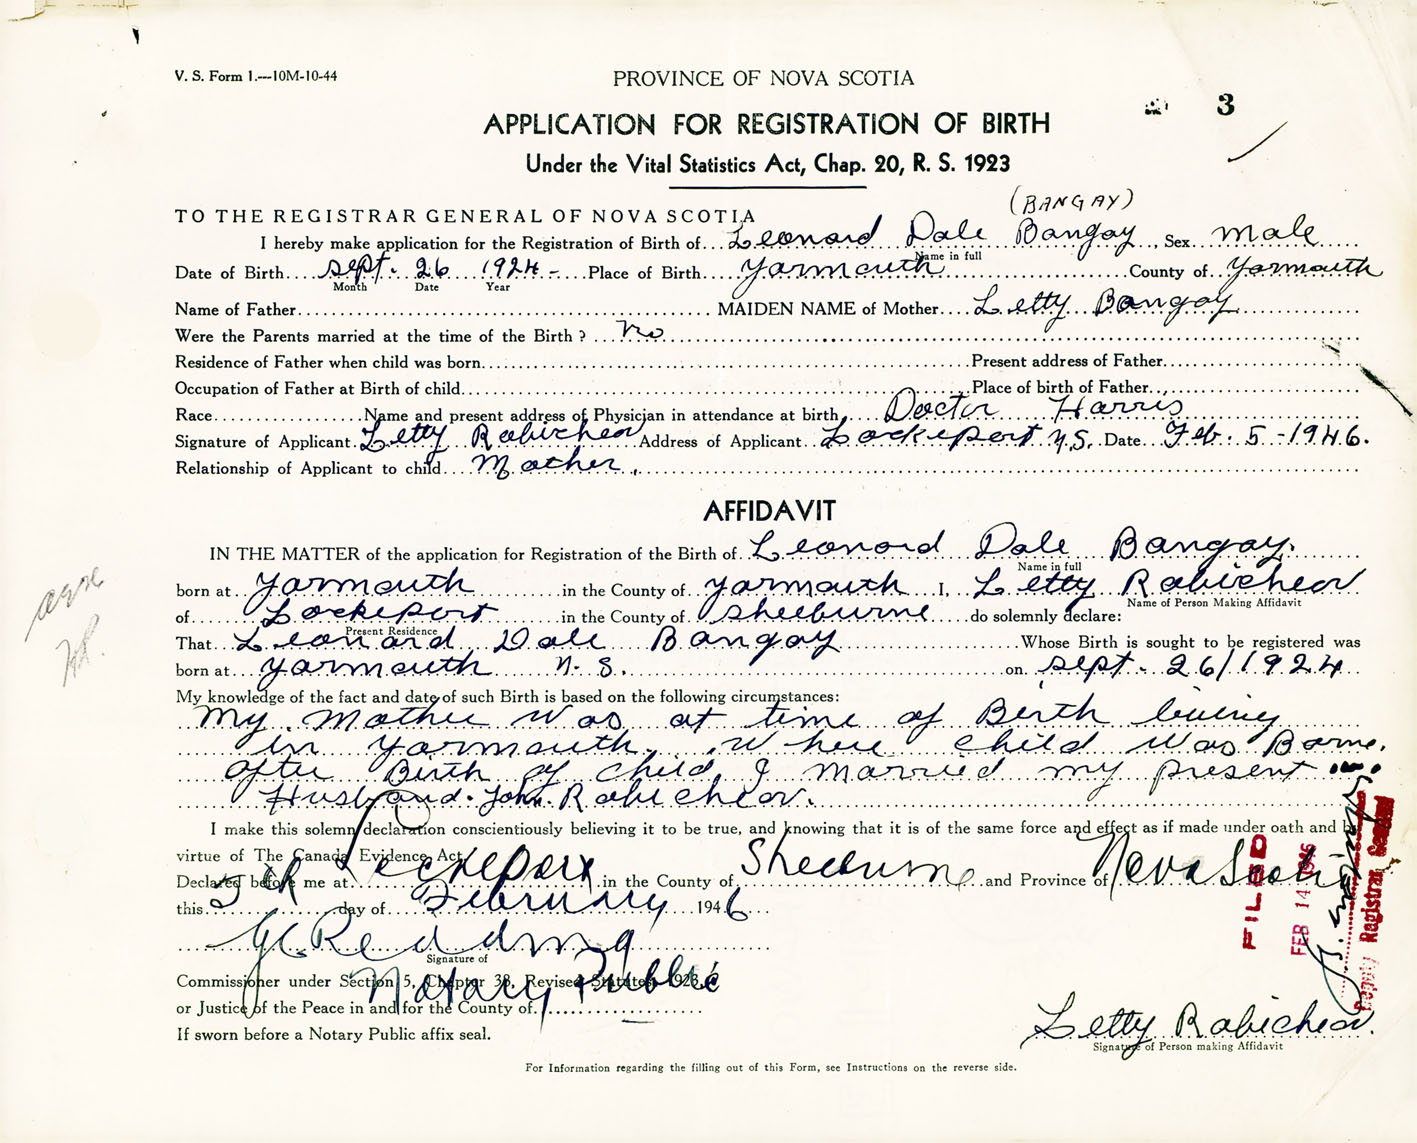 V. S. Form 1.---10M-10-44
PROVINCE OF NOVA SCOTIA
3
APPLICATION FOR REGISTRATION OF BIRTH
Under the Vital Statistics Act, Chap. 20, R. S. 1923
(BANGAY)
TO THE REGISTRAR GENERAL OF NOVA SCOTIA
I hereby make application for the Registration of Birth of Leonard Dale Bangay, Sex Male
Name in full
Date of Birth Sept. 26 1924 - Place of Birth Yarmouth County of Yarmouth
Month Date Year
Name of Father MAIDEN NAME of Mother Letty Bangay
Were the Parents married at the time of the Birth? No
Residence of Father when child was born Present address of Father
Occupation of Father at Birth of child Place of birth of Father
Race Name and present address of Physician in attendance at birth Doctor Harris
Signature of Applicant Letty Robicheau Address of Applicant Lockeport N.S. Date Feb. 5 - 1946.
Relationship of Applicant to child Mother.
AFFIDAVIT
IN THE MATTER of the application for Registration of the Birth of Leonard Dale Bangay.
Name in full
born at Yarmouth in the County of Yarmouth I, Letty Robicheau
Name of Person Making Affidavit
of Lockeport in the County of Shelburne do solemnly declare:
Present Residence
That Leonard Dale Bangay Whose Birth is sought to be registered was
born at Yarmouth N. S. on Sept. 26/1924
My knowledge of the fact and date of such Birth is based on the following circumstances:
My Mother was at time of Birth living
in Yarmouth. Where child was Borne.
after Birth of child I Married my present
Husband. John. Robicheau.
I make this solemn declaration conscientiously believing it to be true, and knowing that it is of the same force and effect as if made under oath and by
virtue of The Canada Evidence Act.
Declared before me at Lockeport in the County of Shelburne and Province of Nova Scotia
this 5th day of February 1946
J C Redding
Signature of
Commissioner under Section 5, Chapter 38, Revised Statutes, 1923,
Notary Public
or Justice of the Peace in and for the County of
If sworn before a Notary Public affix seal.
FILED
FEB 14 1946
Deputy Registrar General
Letty Robicheau.
Signature of Person making Affidavit
For Information regarding the filling out of this Form, see Instructions on the reverse side.